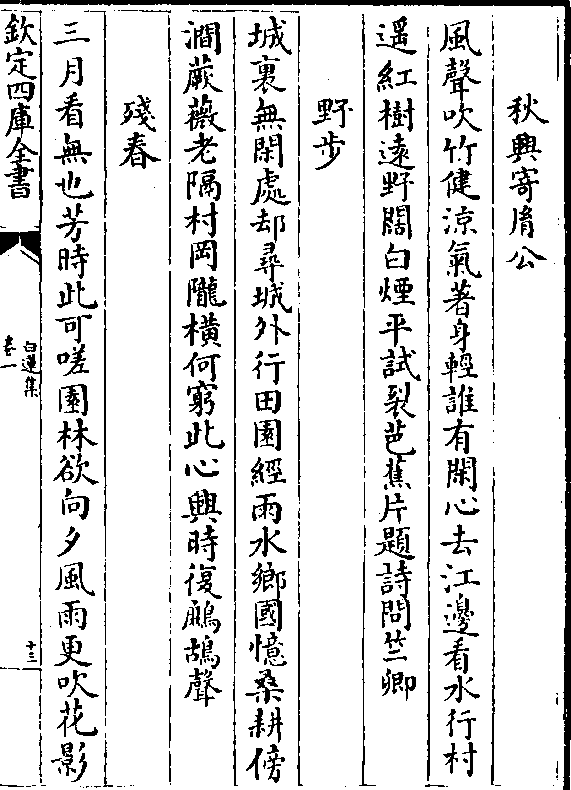 秋興寄胤公
風聲吹竹健涼氣著身輕誰有閑心去江邊看水行村
遥紅樹遠野闊白煙平試裂芭蕉片題詩問竺卿
野步
城裏無閑處却尋城外行田園經雨水鄉國憶桑耕傍
澗蕨薇老隔村岡隴橫何窮此心興時復鷓鴣聲
殘春
三月看無也芳時此可嗟園林欲向夕風雨更吹花影
欽定四庫全書
白蓮集
卷一
十三